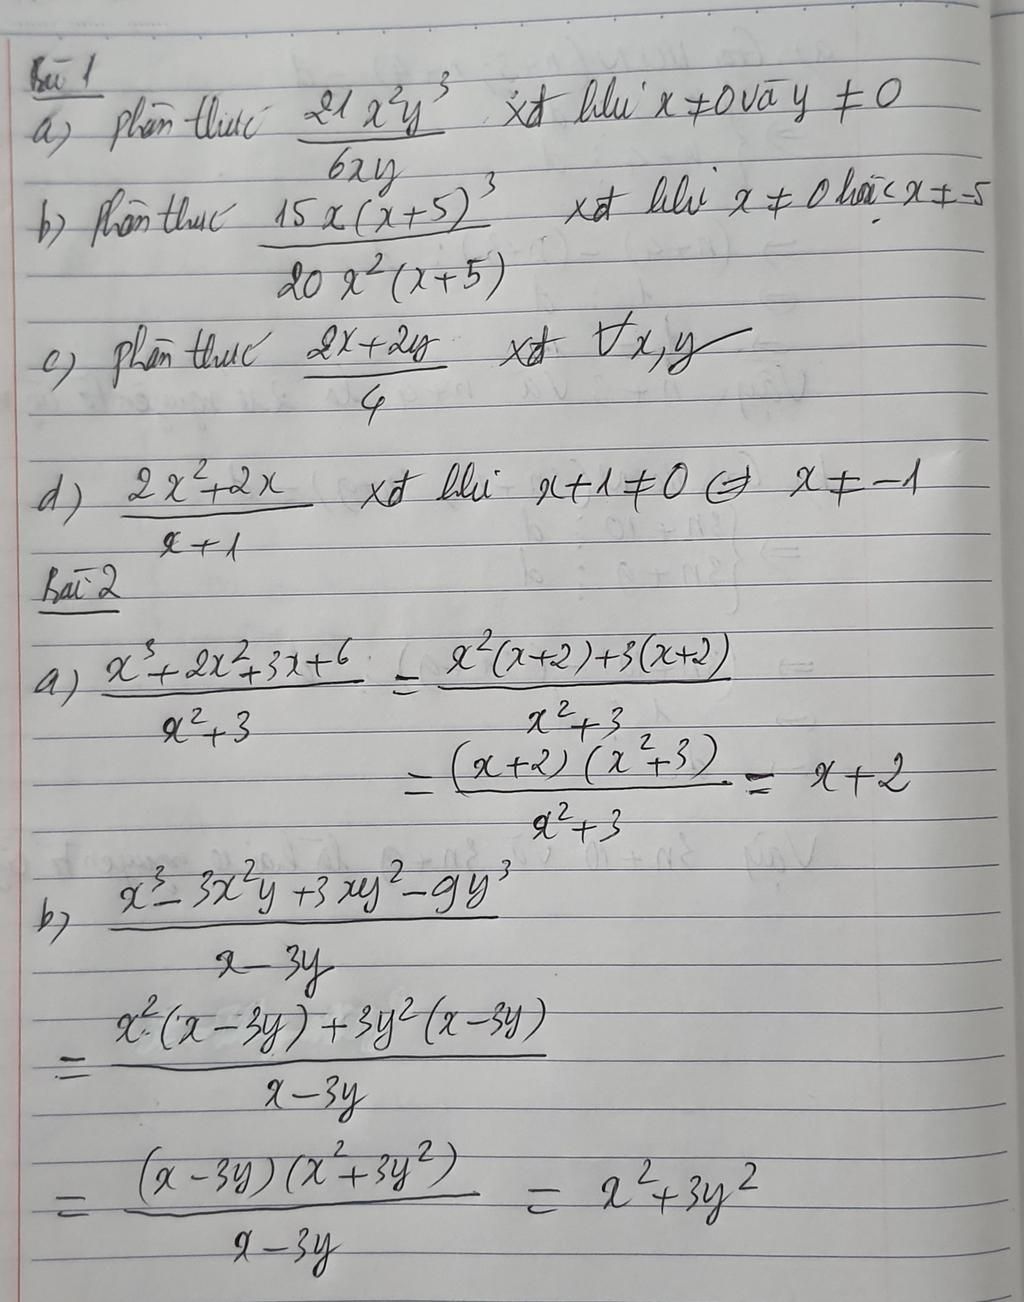 Bài 1
a) phân thức 21x²y³/6xy xđ khi x ≠ 0 và y ≠ 0
b) Phân thức 15x(x+5)³/20x²(x+5) xđ khi x ≠ 0 hoặc x ≠ -5
c) phân thức 2x+2y/4 xđ ∀x,y
d) 2x²+2x/x+1 xđ khi x+1 ≠ 0 ⇔ x ≠ -1
Bài 2
a) x³+2x²+3x+6/x²+3 = x²(x+2)+3(x+2)/x²+3
= (x+2)(x²+3)/x²+3 = x+2
b) x³-3x²y+3xy²-9y³/x-3y
= x²(x-3y)+3y²(x-3y)/x-3y
= (x-3y)(x²+3y²)/x-3y = x²+3y²